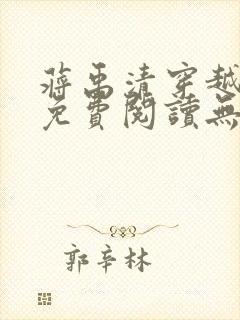 蔣禹清穿越
免費閱讀無
郭辛林